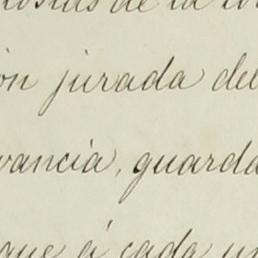 de la
ón jurada del
vancia, guarda
que á cada un